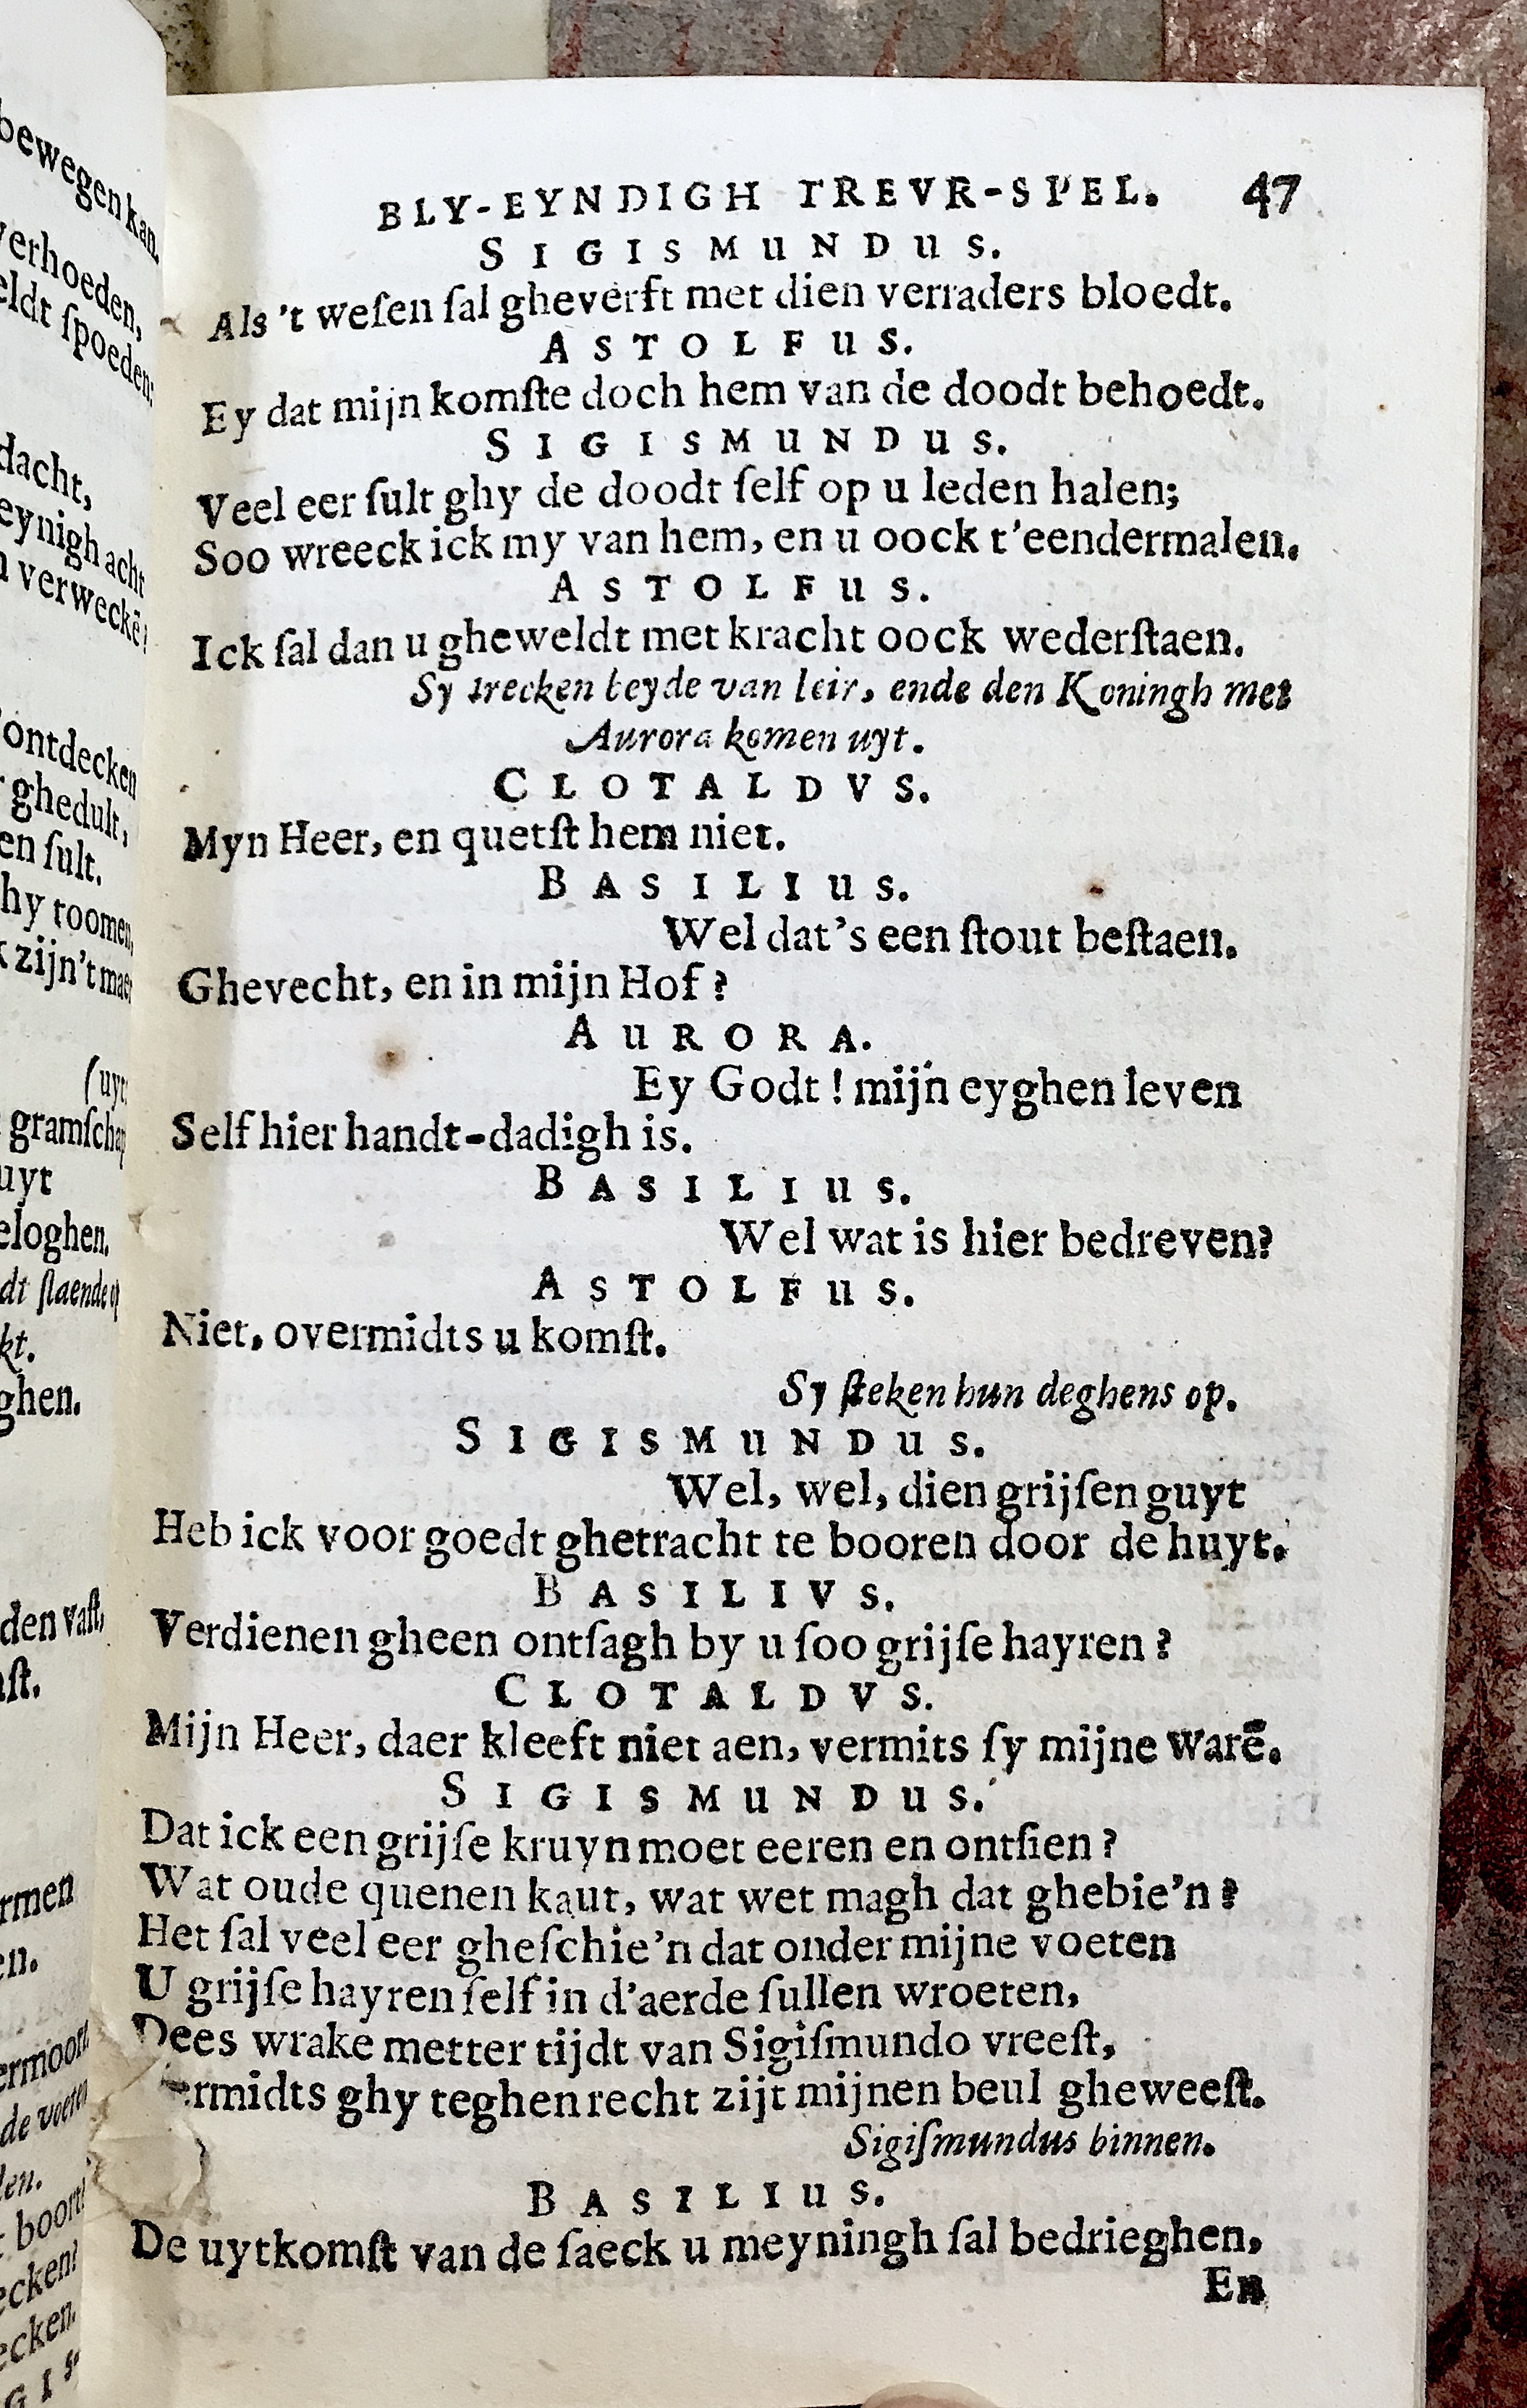 bewegen kan.
verhoeden,
eldt ſpoeden:
dacht,
eynigh acht
verweckē!
ontdecken
ghedult,
en ſult.
hy toomen,
zijn't maer
(uyt:
gramſchap
uyt
eloghen.
dt ſlaende op
kt.
ghen.
den vaſt,
aſt.
rmen
en.
ermoort
de voeten
len.
boort!
ecken!
ecken.
BLY-EYNDIGH TREVR-SPEL. 47
SIGISMUNDUS.
Als 't weſen ſal gheverft met dien verraders bloedt.
ASTOLFUS.
Ey dat mijn komſte doch hem van de doodt behoedt.
SIGISMUNDUS.
Veel eer ſult ghy de doodt ſelf op u leden halen;
Soo wreeck ick my van hem, en u oock t'eendermalen.
ASTOLFUS.
Ick ſal dan u gheweldt met kracht oock wederſtaen.
Sy trecken beyde van leir, ende den Koningh met
Aurora komen uyt.
CLOTALDVS.
Myn Heer, en quetſt hem niet.
BASILIUS.
Wel dat's een ſtout beſtaen.
Ghevecht, en in mijn Hof?
AURORA.
Ey Godt! mijn eyghen leven
Self hier handt-dadigh is.
BASILIUS.
Wel wat is hier bedreven?
ASTOLFUS.
Niet, overmidts u komſt.
Sy ſteken hun deghens op.
SIGISMUNDUS.
Wel, wel, dien grijſen guyt
Heb ick voor goedt ghetracht te booren door de huyt.
BASILIVS.
Verdienen gheen ontſagh by u ſoo grijſe hayren?
CLOTALDVS.
Mijn Heer, daer kleeft niet aen, vermits ſy mijne warē.
SIGISMUNDUS.
Dat ick een grijſe kruyn moet eeren en ontſien?
Wat oude quenen kaut, wat wet magh dat ghebie'n?
Het ſal veel eer gheſchie'n dat onder mijne voeten
U grijſe hayren ſelf in d'aerde ſullen wroeten,
Dees wrake metter tijdt van Sigiſmundo vreeſt,
ermidts ghy teghen recht zijt mijnen beul gheweeſt.
Sigiſmundus binnen.
BASILIUS.
De uytkomſt van de ſaeck u meyningh ſal bedrieghen,
En